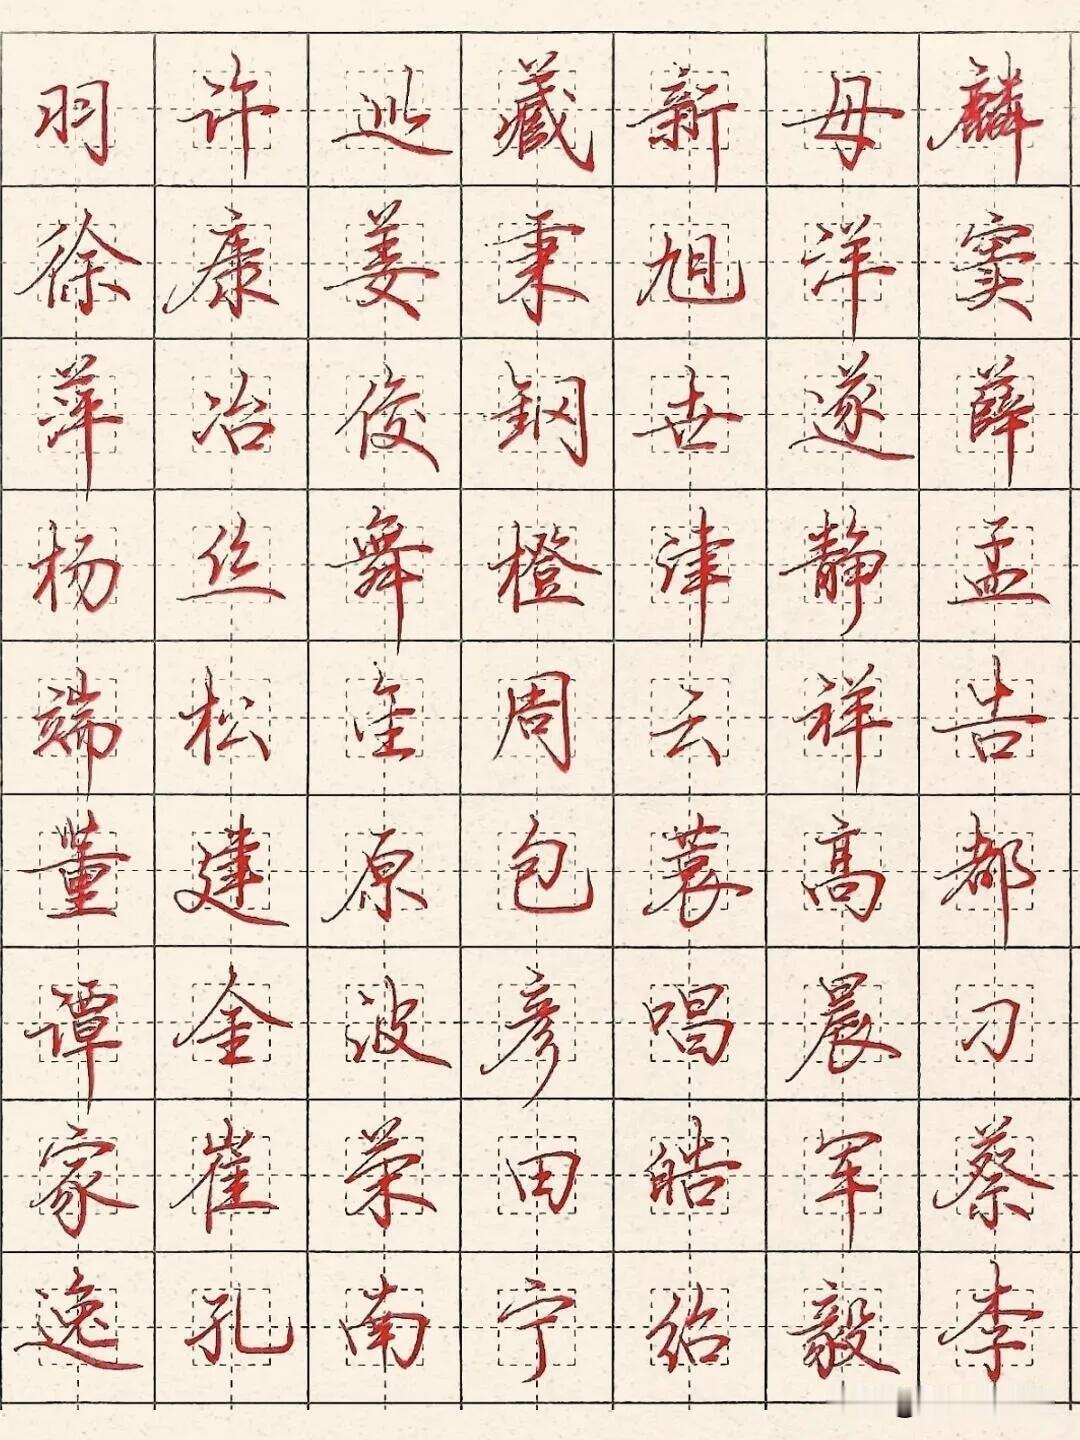 羽许巡藏新母麟
徐康姜秉旭洋窦
萍冶俊钢世遂薛
杨丝舞橙津静孟
端松奎周云祥吉
董建原包蓑高都
谭金波彦唱晨刁
家崔荣田皓军蔡
逸孔南宁绍毅李